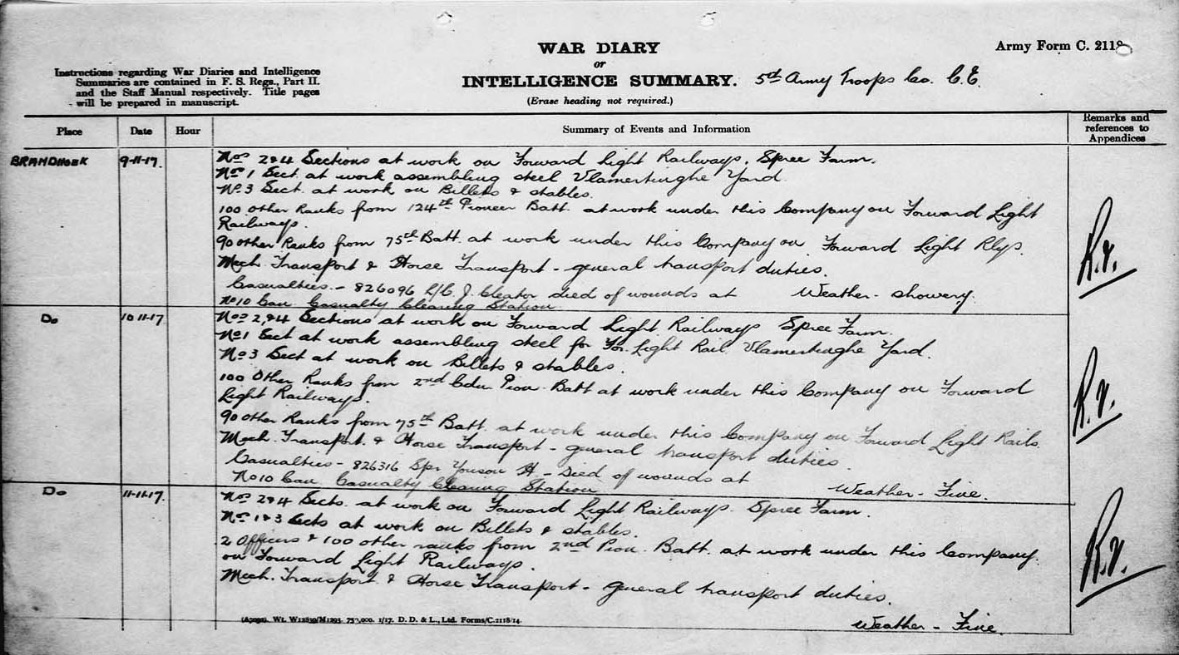 WAR DIARY
or
INTELLIGENCE SUMMARY. 5th Army Troops Co. C.E.
(Erase heading not required.)
Army Form C. 2118
Instructions regarding War Diaries and Intelligence
Summaries are contained in F. S. Regs., Part II.
and the Staff Manual respectively. Title pages
will be prepared in manuscript.
Place Date Hour Summary of Events and Information Remarks and
references to
Appendices
BRANDHOEK 9-11-17. Nos 2&4 Sections at work on Forward Light Railways, Spree Farm.
No 1 Sect. at work assembling steel Vlamertinghe Yard
No 3 Sect. at work on Billets & stables.
100 Other Ranks from 124th Pioneer Batt. at work under this Company on Forward Light
Railways.
90 other Ranks from 75th Batt. at work under this Company on Forward Light Rlys.
Mech. Transport & Horse Transport - general transport duties.
Casualties. - 826096 L/C. J. Cleator died of wounds at Weather - showery.
No 10 Can Casualty Clearing Station
Do 10-11-17 Nos 2,&4 Sections at work on Forward Light Railways Spree Farm.
No 1 Sect at work assembling steel for For. Light Rail. Vlamertinghe Yard.
No 3 Sect at work on Billets & stables.
100 Other Ranks from 2nd Cdn Pion. Batt at work under this Company on Forward
Light Railways.
90 other Ranks from 75th Batt. at work under this Company on Forward Light Rails
Mech. Transport. & Horse Transport - general transport duties.
Casualties - 826316 Spr H - Died of wounds at
No 10 Can. Casualty Clearing Station Weather - Fine.
Do 11-11-17. No. 2&4 Sects. at work on Forward Light Railways. Spree Farm.
No. 1&3 Sects at work on Billets & stables.
2 Officers & 100 other ranks from 2nd Pion. Batt. at work under this Company
on Forward Light Railways.
Mech. Transport & Horse Transport - general transport duties.
Weather - Fine.
D. D. & L., Ltd. Forms/C.2118/14.